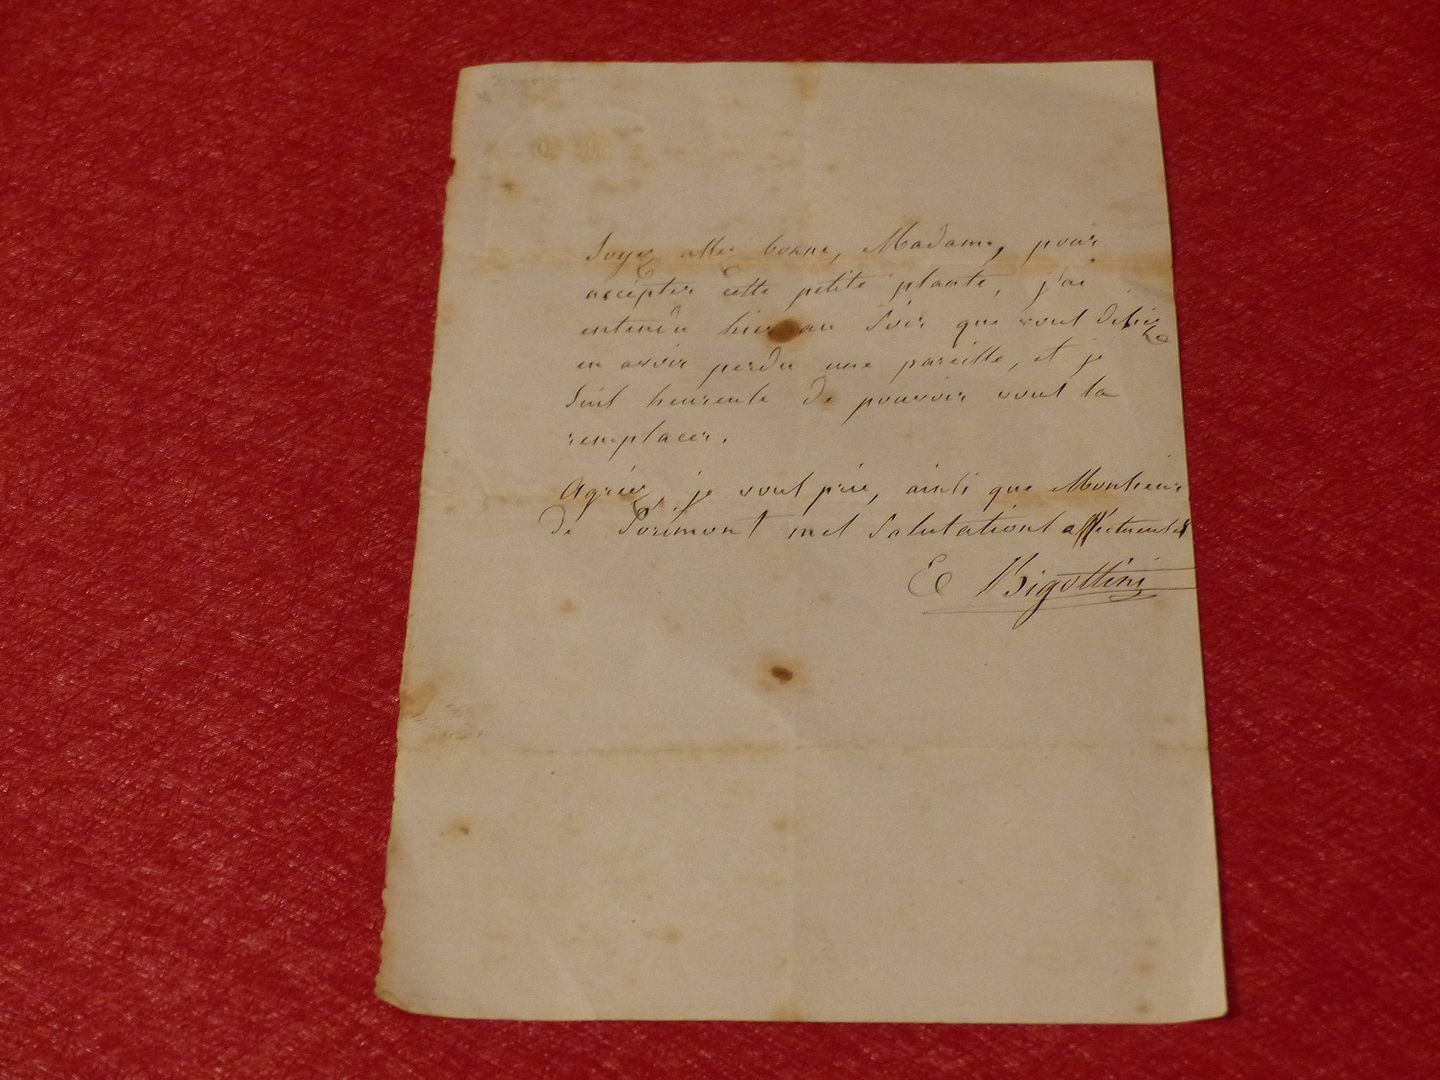 Soyez assez bonne, Madame, pour
accepter cette petite plante, j'ai
entendu hier au soir que vous disiez
en avoir perdu une pareille, et je
suis heureuse de pouvoir vous la
remplacer.
Agréez, je vous prie, ainsi que Monsieur
de mes salutations affectueuses
E Bigottini